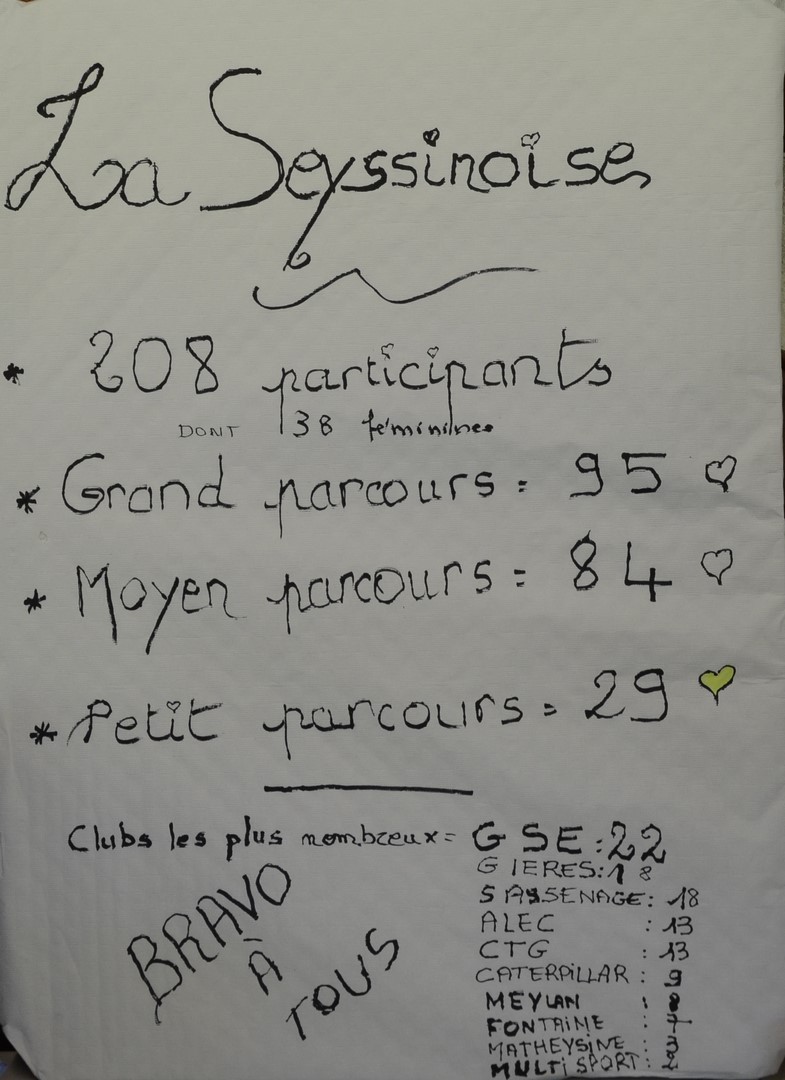 La Seyssinoise
* 208 participants
DONT 38 féminines
* Grand parcours = 95
* Moyen parcours = 84
* Petit parcours = 29
Clubs les plus nombreux = GSE : 22
GIERES : 18
SASSENAGE : 18
ALEC : 13
CTG : 13
CATERPILLAR : 9
MEYLAN : 8
FONTAINE : 7
MATHEYSINE : 3
MULTISPORT : 2
BRAVO
À
TOUS